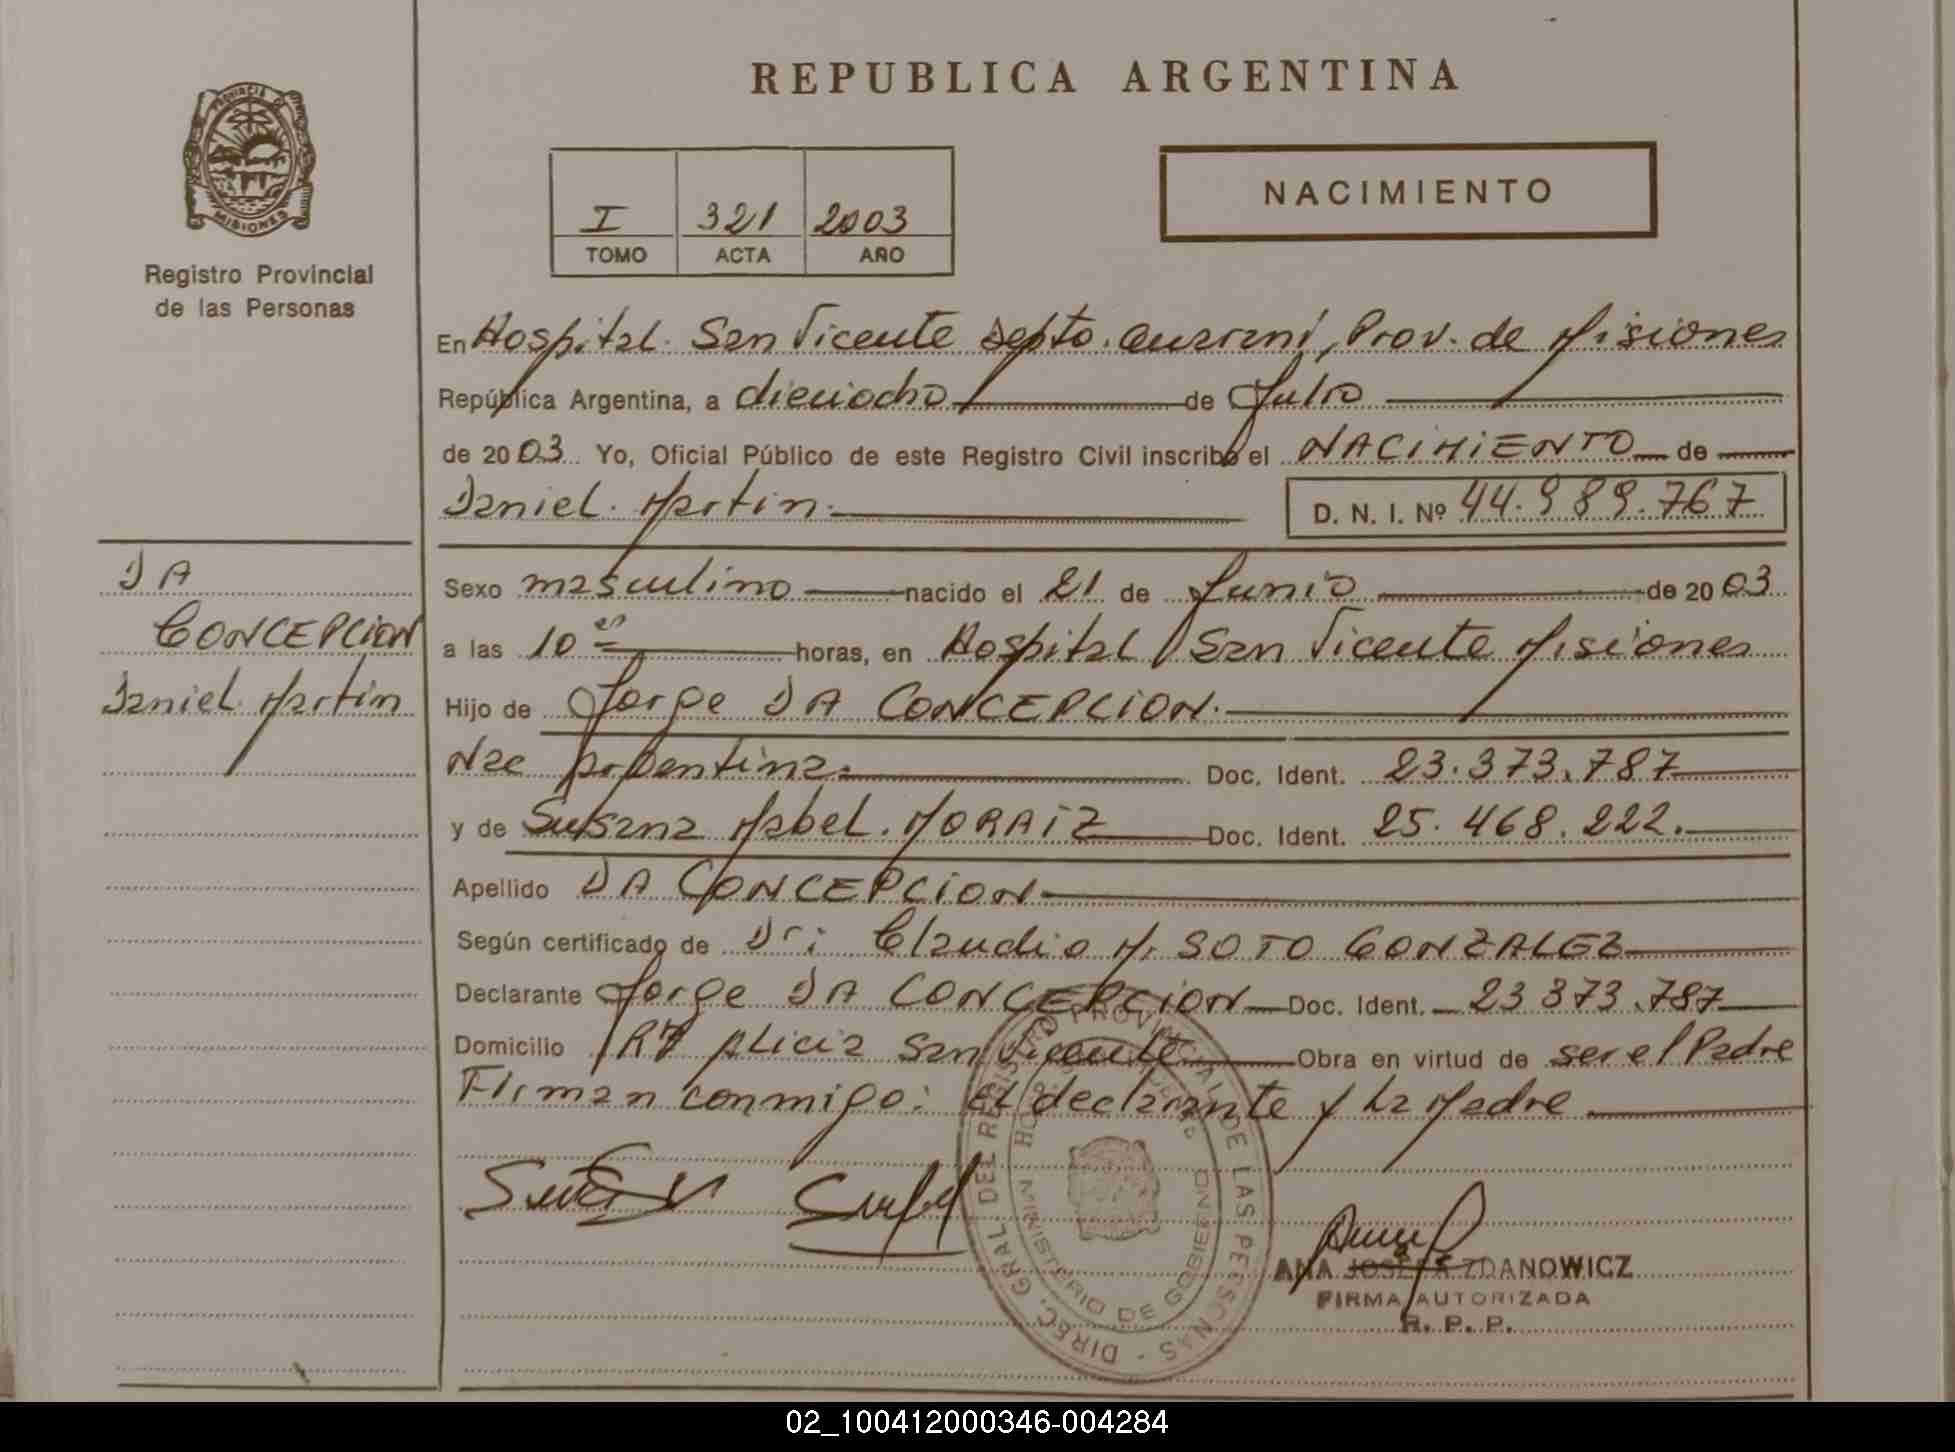 REPUBLICA ARGENTINA
PROVINCIA DE
MISIONES
Registro Provincial
de las Personas
I 321 2003
TOMO ACTA AÑO
NACIMIENTO
En Hospital. San Vicente Depto. Guaraní, Prov. de Misiones
República Argentina, a dieciocho de Julio
de 2003 Yo, Oficial Público de este Registro Civil inscribo el NACIMIENTO de
Daniel. Martin. D. N. I. Nº 44.989.767
DA
CONCEPCION
Daniel Martin
Sexo masculino nacido el 21 de Junio de 2003
a las 10 horas, en Hospital San Vicente Misiones
Hijo de Jorge DA CONCEPCION.
Nac Argentina. Doc. Ident. 23.373.787
y de Susana Mabel. MORAIZ Doc. Ident. 25.468.222.
Apellido DA CONCEPCION
Según certificado de Dr: Claudio M. SOTO GONZALEZ
Declarante Jorge DA CONCEPCION Doc. Ident. 23 373.787
Domicilio Alicia San Vicente Obra en virtud de ser el Padre
Firman conmigo: El declarante y La Madre
DIREC. GRAL DEL REGISTRO PROVINCIAL DE LAS PERSONAS
MINISTERIO DE GOBIERNO
ANA JOSEFA ZDANOWICZ
FIRMA AUTORIZADA
R. P. P.
02_100412000346-004284